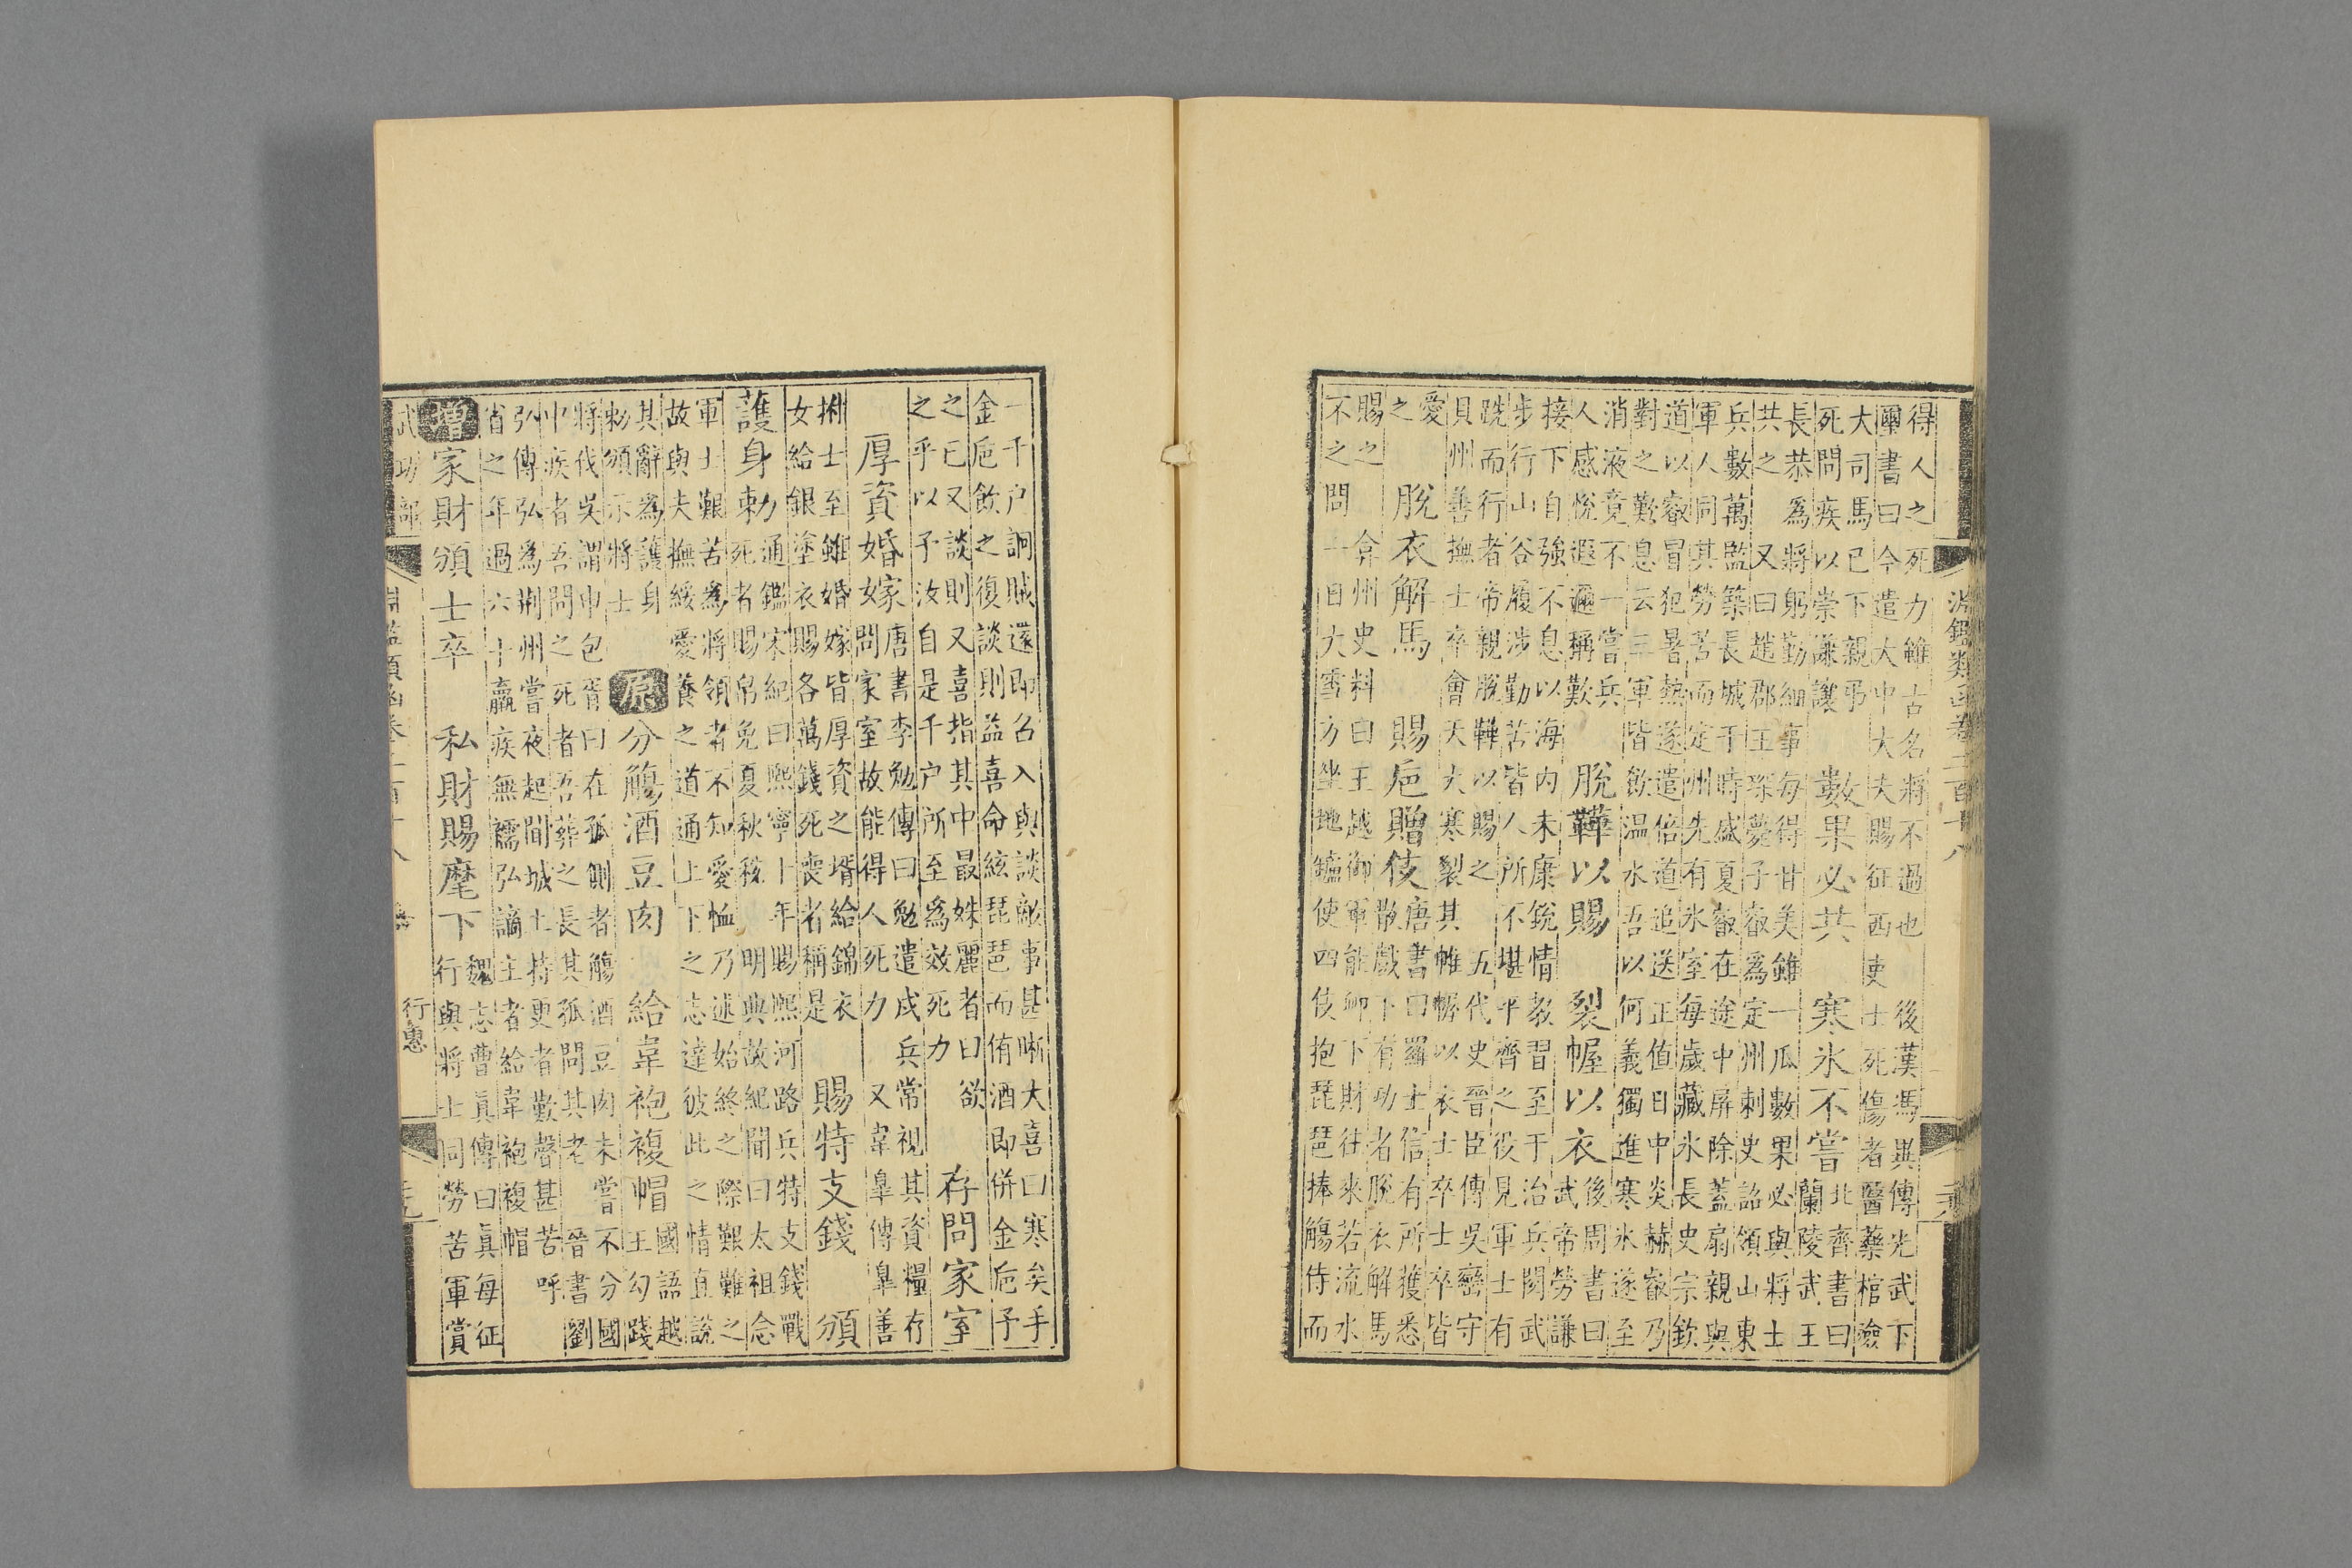 淵鑑類函卷二百十八
得人之死力雖古名將不過也 後漢馮異傳光武下
璽書曰今遣大中大夫賜征西吏士死傷者醫藥棺斂
大司馬已下親弔
死問疾以崇謙讓
數果必共 寒氷不嘗
北齊書曰
蘭陵武王
長恭爲將躬勤細事每得甘美雖一瓜數果必與將士
共之 又曰趙郡王琛孳子叡爲定州刺史詔領山東
兵數萬監築長城于時盛夏叡在途中屏除蓋扇親與
軍人同其勞苦而定州先有氷室每歲藏氷長史宗欽
道以叡冒犯暑熱遂遣倍道追送正值日中炎赫叡乃
對之歎息云三軍皆飲温水吾以何義獨進寒氷遂至
消液竟不一嘗兵
人感悅遐邇稱歎
脫鞾以賜 裂幄以衣
後周書曰
武帝勞謙
接下自強不息以海内未康銳情教習至于治兵閱武
步行山谷履涉勤苦皆人所不堪平齊之役見軍士有
跣而行者帝親脫鞾以賜之 五代史晉臣傳吳巒守
貝州善撫士卒會天大寒裂其帷幄以衣士卒士卒皆
愛
之
脫衣解馬 賜巵贈伎
唐書曰羅士信有所獲悉
散戲下有功者脫衣解馬
賜之 弇州史料曰王越御軍能卹下財往來若流水
不之問 一日大雪方坐地鑪使四伎抱琵琶捧觴侍而
一千户詗賊還即召入與談敵事甚晰大喜曰寒矣手
金巵飲之復談則益喜命絃琵琶而侑酒即併金巵予
之已又談則又喜指其中最姝麗者曰欲
之乎以予汝自是千户所至爲效死力
存問家室
厚資婚嫁
唐書李勉傳曰勉遣戍兵常視其資糧存
問家室故能得人死力 又韋臯傳臯善
拊士至雖婚嫁皆厚資之壻給錦衣
女給銀塗衣賜各萬錢死喪者稱是
賜特支錢 頒
護身勅
通鑑宋紀曰熙寧十年賜熙河路兵特支錢戰
死者賜帛免夏秋稅 明典故紀聞曰太祖念
軍士艱苦爲將領者不知愛恤乃述始終之際艱難之
故與夫撫綏愛養之道通上下之志達彼此之情直說
其辭爲護身
勅頒示將士
原 分觴酒豆肉 給韋袍複帽
國語越
王勾踐
將伐吳謂申包胥曰在孤側者觴酒豆肉未嘗不分國
中疾者吾問之死者吾葬之長其孤問其老 晉書劉
弘傳弘爲荆州嘗夜起聞城上持更者歎聲甚苦呼
省之年過六十羸疾無襦弘謫主者給韋袍複帽
增 家財頒士卒 私財賜麾下
魏志曹真傳曰真每征
行與將士同勞苦軍賞
武功部
淵鑑類函卷二百十八
行惠